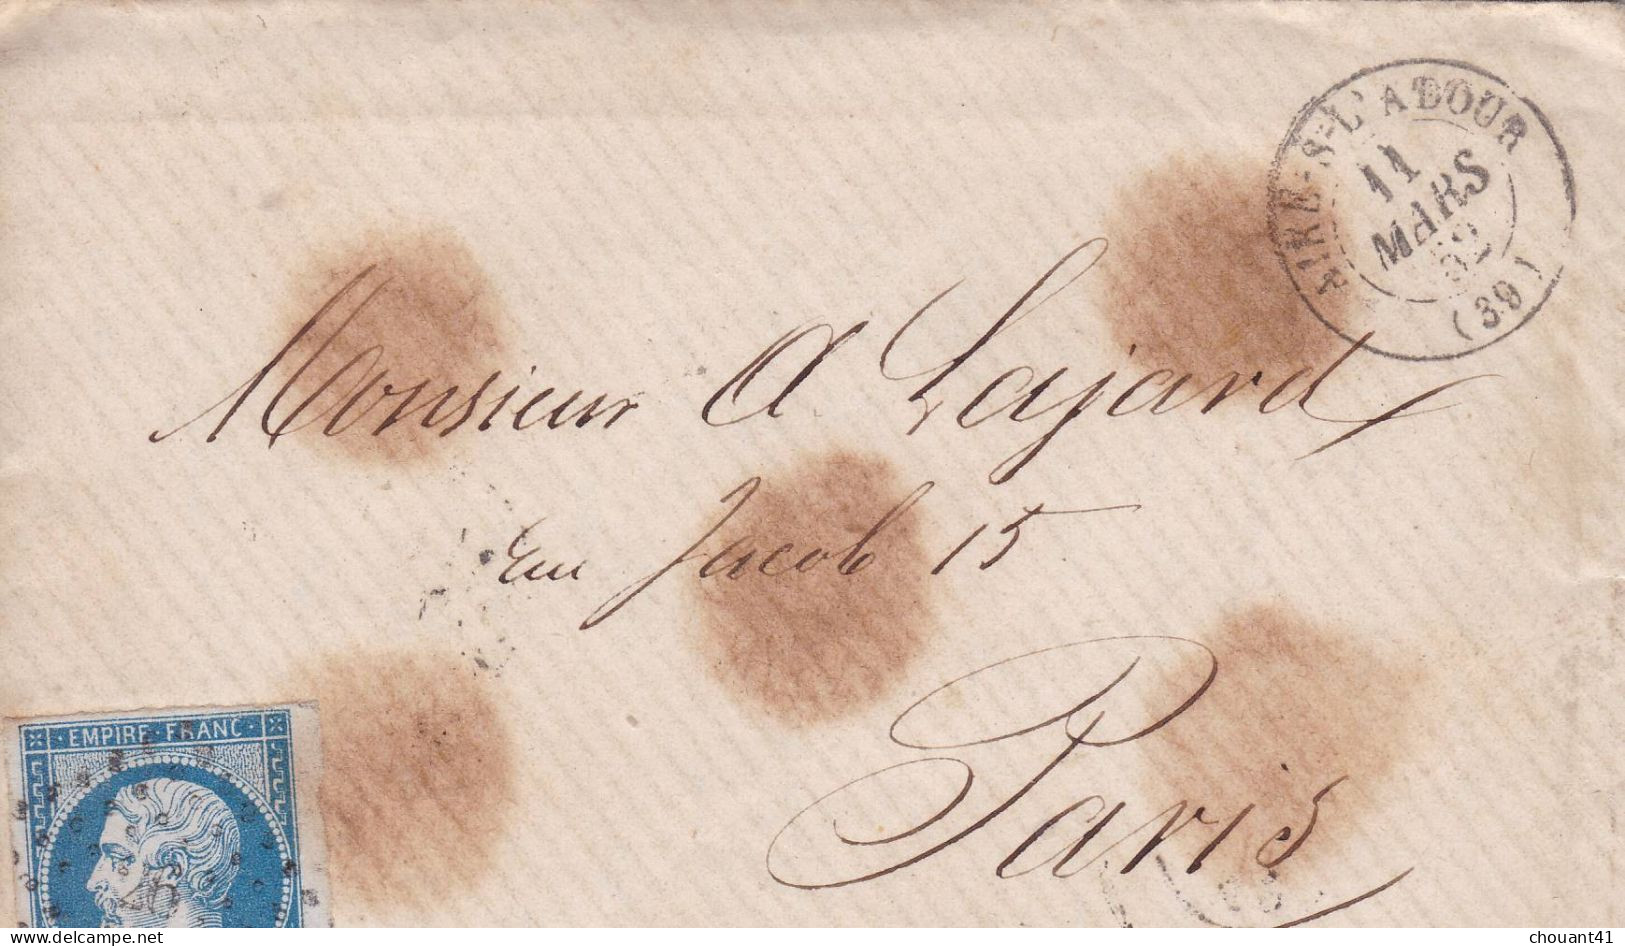 AIRE-S-L'ADOUR
11
MARS
62
(39)
Monsieur A Lajard
rue Jacob 15
Paris
EMPIRE FRANC
26
delcampe.net
chouant41